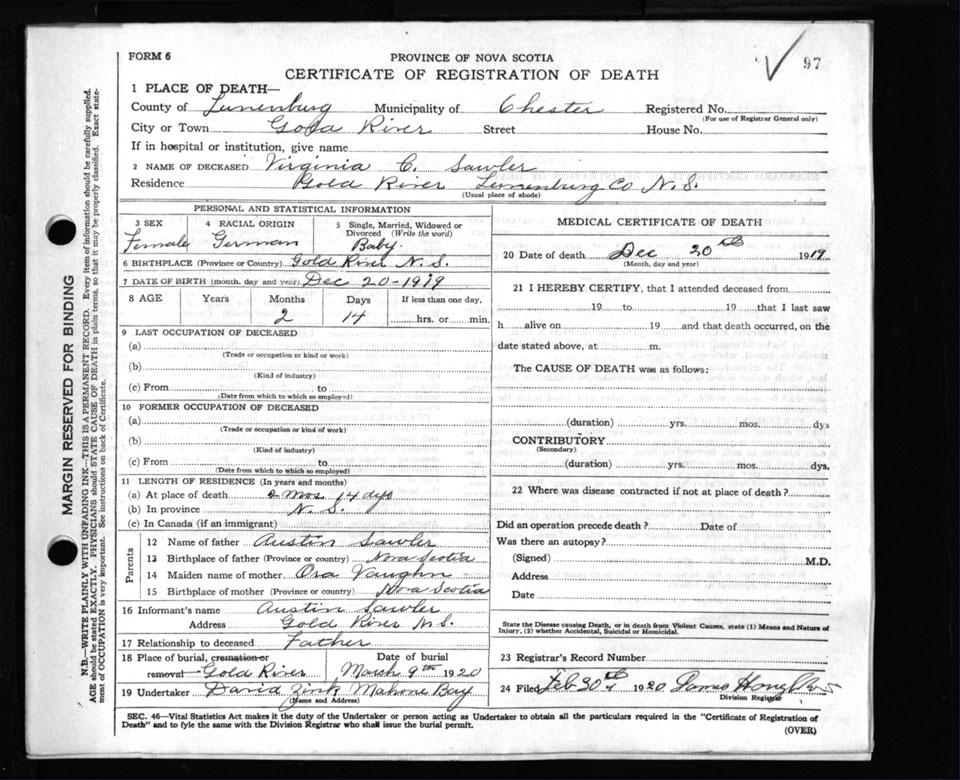 FORM 6
PROVINCE OF NOVA SCOTIA
97
CERTIFICATE OF REGISTRATION OF DEATH
1 PLACE OF DEATH—
County of Lunenburg Municipality of Chester Registered No.
(For use of Registrar General only)
City or Town Gold River Street House No.
If in hospital or institution, give name
2 NAME OF DECEASED Virginia C. Sawler
Residence Gold River Lunenburg Co N.S.
(Usual place of abode)
PERSONAL AND STATISTICAL INFORMATION
3 SEX 4 RACIAL ORIGIN 5 Single, Married, Widowed or Divorced (Write the word)
Female German Baby.
6 BIRTHPLACE (Province or Country) Gold River N.S.
7 DATE OF BIRTH (month, day and year) Dec 20-1919
8 AGE Years Months Days If less than one day,
2 14 hrs. or min.
9 LAST OCCUPATION OF DECEASED
(a)
(Trade or occupation or kind or work)
(b)
(Kind of industry)
(c) From to
(Date from which to which so employed)
10 FORMER OCCUPATION OF DECEASED
(a)
(Trade or occupation or kind of work)
(b)
(Kind of industry)
(c) From to
(Date from which to which employed)
11 LENGTH OF RESIDENCE (In years and months)
(a) At place of death 2 mos 14 dys
(b) In province N.S.
(c) In Canada (if an immigrant)
Parents
12 Name of father Austin Sawler
13 Birthplace of father (Province or country) Nova Scotia
14 Maiden name of mother Ora Vaughn
15 Birthplace of mother (Province or country) Nova Scotia
16 Informant's name Austin Sawler
Address Gold River N.S.
17 Relationship to deceased Father
18 Place of burial, cremation or Date of burial
removal Gold River March 9th 1920
19 Undertaker David Zink Mahone Bay
(Name and Address)
MEDICAL CERTIFICATE OF DEATH
20 Date of death Dec 20th 1919
(Month, day and year)
21 I HEREBY CERTIFY, that I attended deceased from
19 to 19 that I last saw
h alive on 19 and that death occurred, on the
date stated above, at m.
The CAUSE OF DEATH was as follows:
(duration) yrs. mos. dys
CONTRIBUTORY
(Secondary)
(duration) yrs. mos. dys.
22 Where was disease contracted if not at place of death?
Did an operation precede death? Date of
Was there an autopsy?
(Signed) M.D.
Address
Date
State the Disease causing Death, or in death from Violent Causes, state (1) Means and Nature of
Injury, (2) whether Accidental, Suicidal or Homicidal.
23 Registrar's Record Number
24 Filed Feb 30th 1920 James
Division Registrar
SEC. 46—Vital Statistics Act makes it the duty of the Undertaker or person acting as Undertaker to obtain all the particulars required in the "Certificate of Registration of
Death" and to fyle the same with the Division Registrar who shall issue the burial permit.
(OVER)
MARGIN RESERVED FOR BINDING
N.B.—WRITE PLAINLY WITH UNFADING INK—THIS IS A PERMANENT RECORD. Every item of information should be carefully supplied.
AGE should be stated EXACTLY. PHYSICIANS should STATE CAUSE OF DEATH in plain terms, so that it may be properly classified. Exact state-
ment of OCCUPATION is very important. See instructions on back of Certificate.